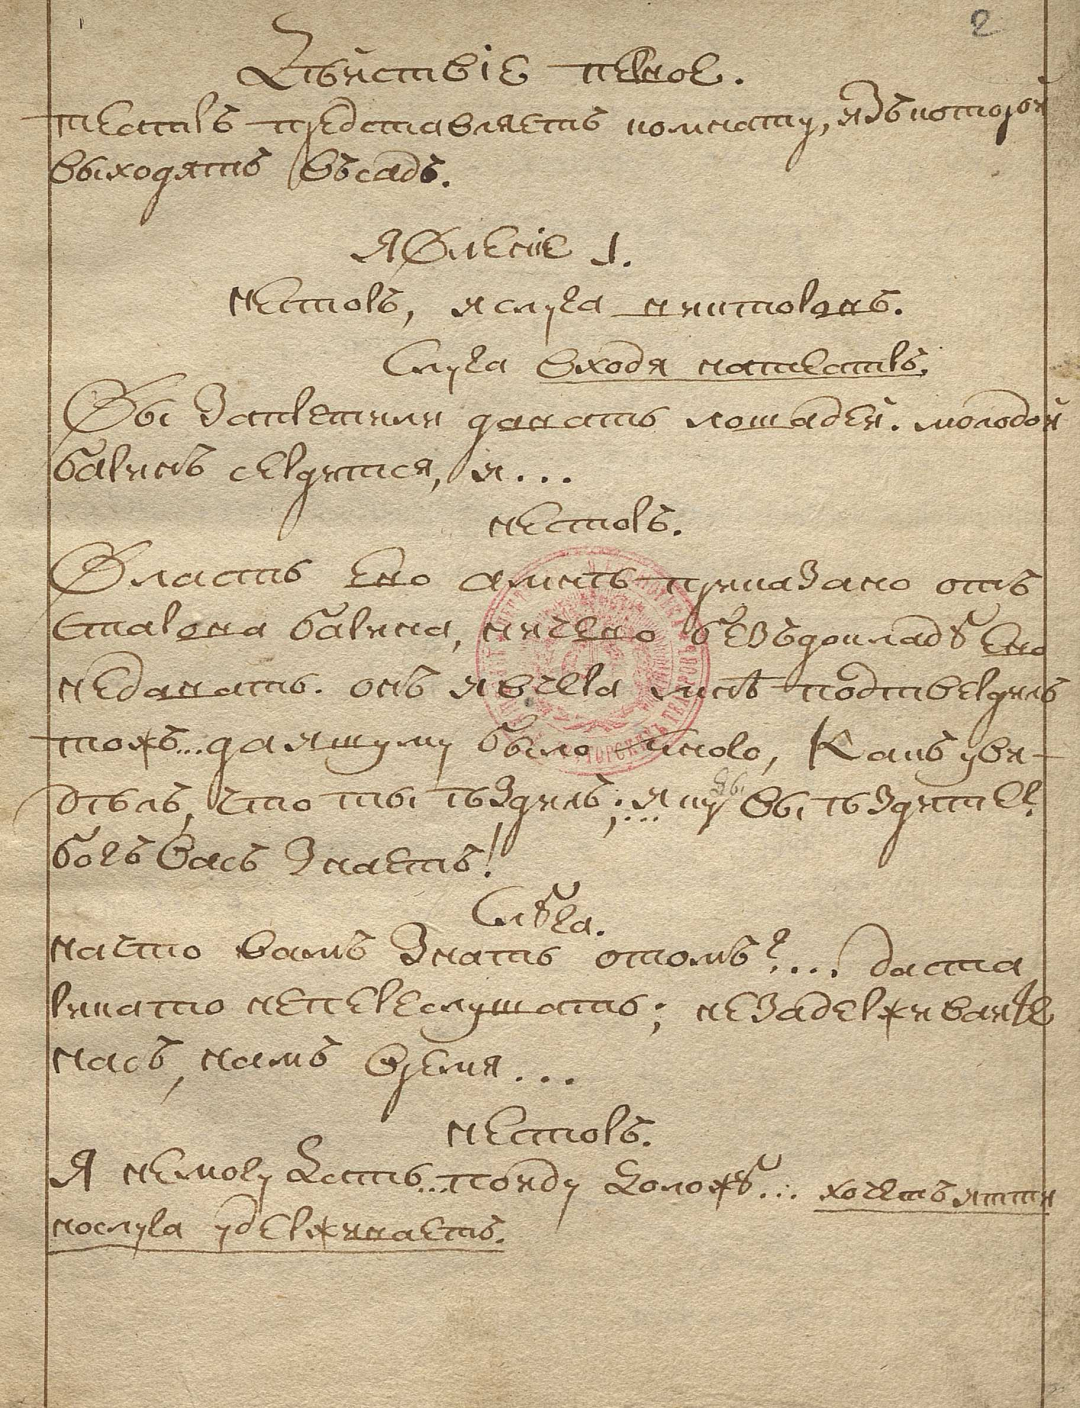 2
Дѣйствiе первое.
театръ представляетъ комнату, изъ которой
выходятъ въ садъ.
Явленiе 1.
Несторъ, и слуга викторовъ.
Слуга входя на театръ.
Вы запретили давать лошадей. молодой
баринъ сердится, и...
Несторъ.
Власть ево а мнѣ приказано отъ
старова барина, ничево безъ доклад8 ево
недавать. онъ и вчера мнѣ подтвердилъ
тожъ... да и шуму было много, какъ уви-
дѣлъ, что ты ѣздилъ; и ... вы ѣздители
богъ васъ знаетъ!
Сл8га.
на что вамъ знать отомъ?... даста
рикато непереслушать; незадерживайте
насъ, намъ время...
Несторъ.
Я немогу дать... пойду долож8... хочетъ итти
нослуга удерживаетъ.